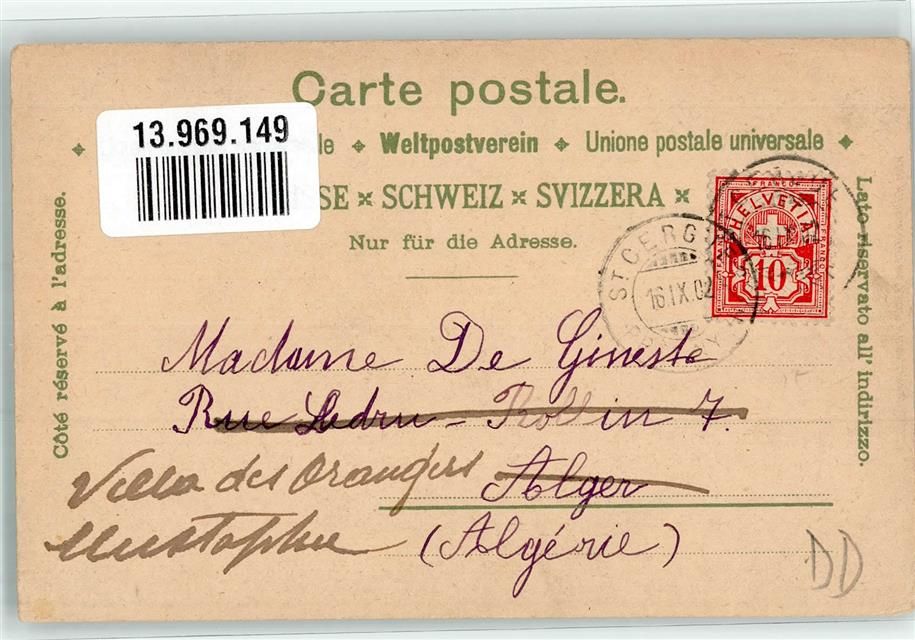 Carte postale.
13.969.149
le Weltpostverein Unione postale universale
SE × SCHWEIZ × SVIZZERA ×
Nur für die Adresse.
Côté réservé à l'adresse.
Lato riservato all' indirizzo.
FRANCO
HELVETIA
10
ST CERG
16.IX.02
Madame De Gineste
Rue Ledru-Rollin 7.
Alger
Villa des Orangers
Mustapha
(Algérie)
DD